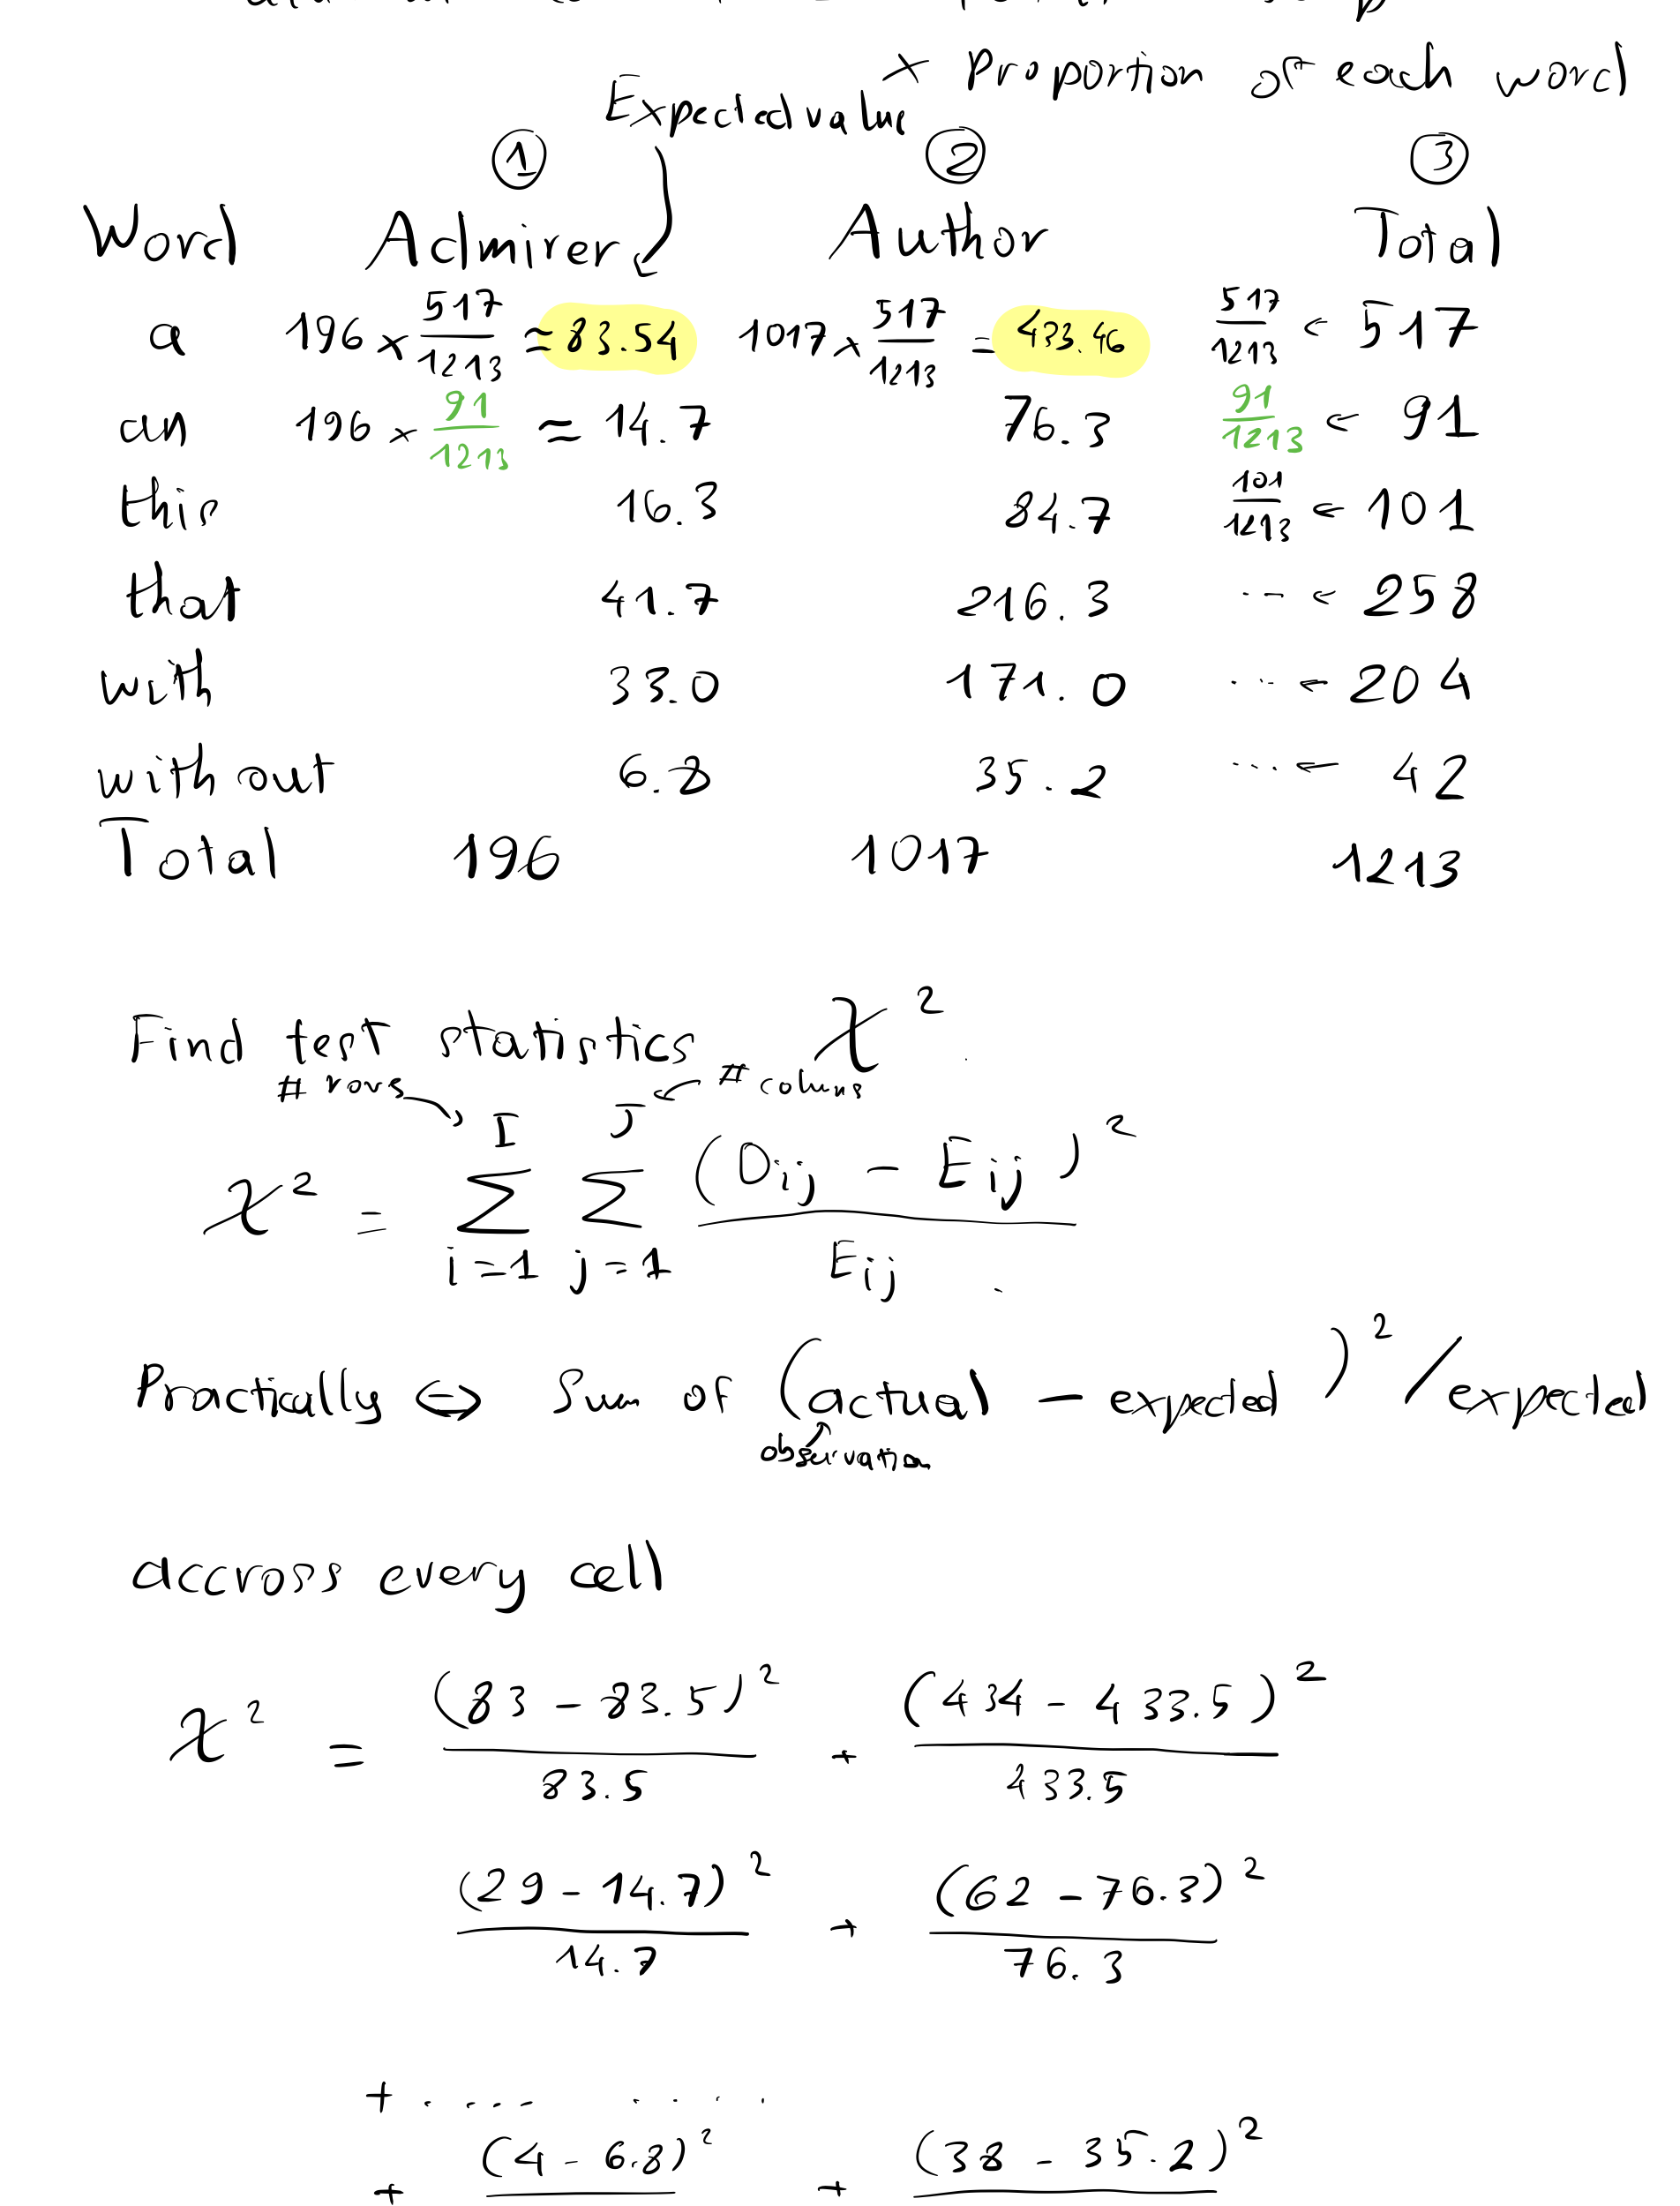 × Proportion of each word
Expected value
① ② ③
Word Admirer Author Total
a 196 × 517/1213 ≈ 83.54 1017 × 517/1213 = 433.46 517/1213 ← 517
an 196 × 91/1213 ≈ 14.7 76.3 91/1213 ← 91
this 16.3 84.7 101/1213 ← 101
that 41.7 216.3 ... ← 258
with 33.0 171.0 ... ← 204
without 6.8 35.2 ... ← 42
Total 196 1017 1213
Find test statistics χ²
# rows # colums
χ² = Σ_{i=1}^{I} Σ_{j=1}^{J} (Oij - Eij)² / Eij
Practically ⇔ Sum of (actual - expected)² / expected
observation
accross every cell
χ² = (83 - 83.5)² / 83.5 + (434 - 433.5)² / 433.5
(29 - 14.7)² / 14.7 + (62 - 76.3)² / 76.3
+ .... .....
+ (4 - 6.8)² + (38 - 35.2)²